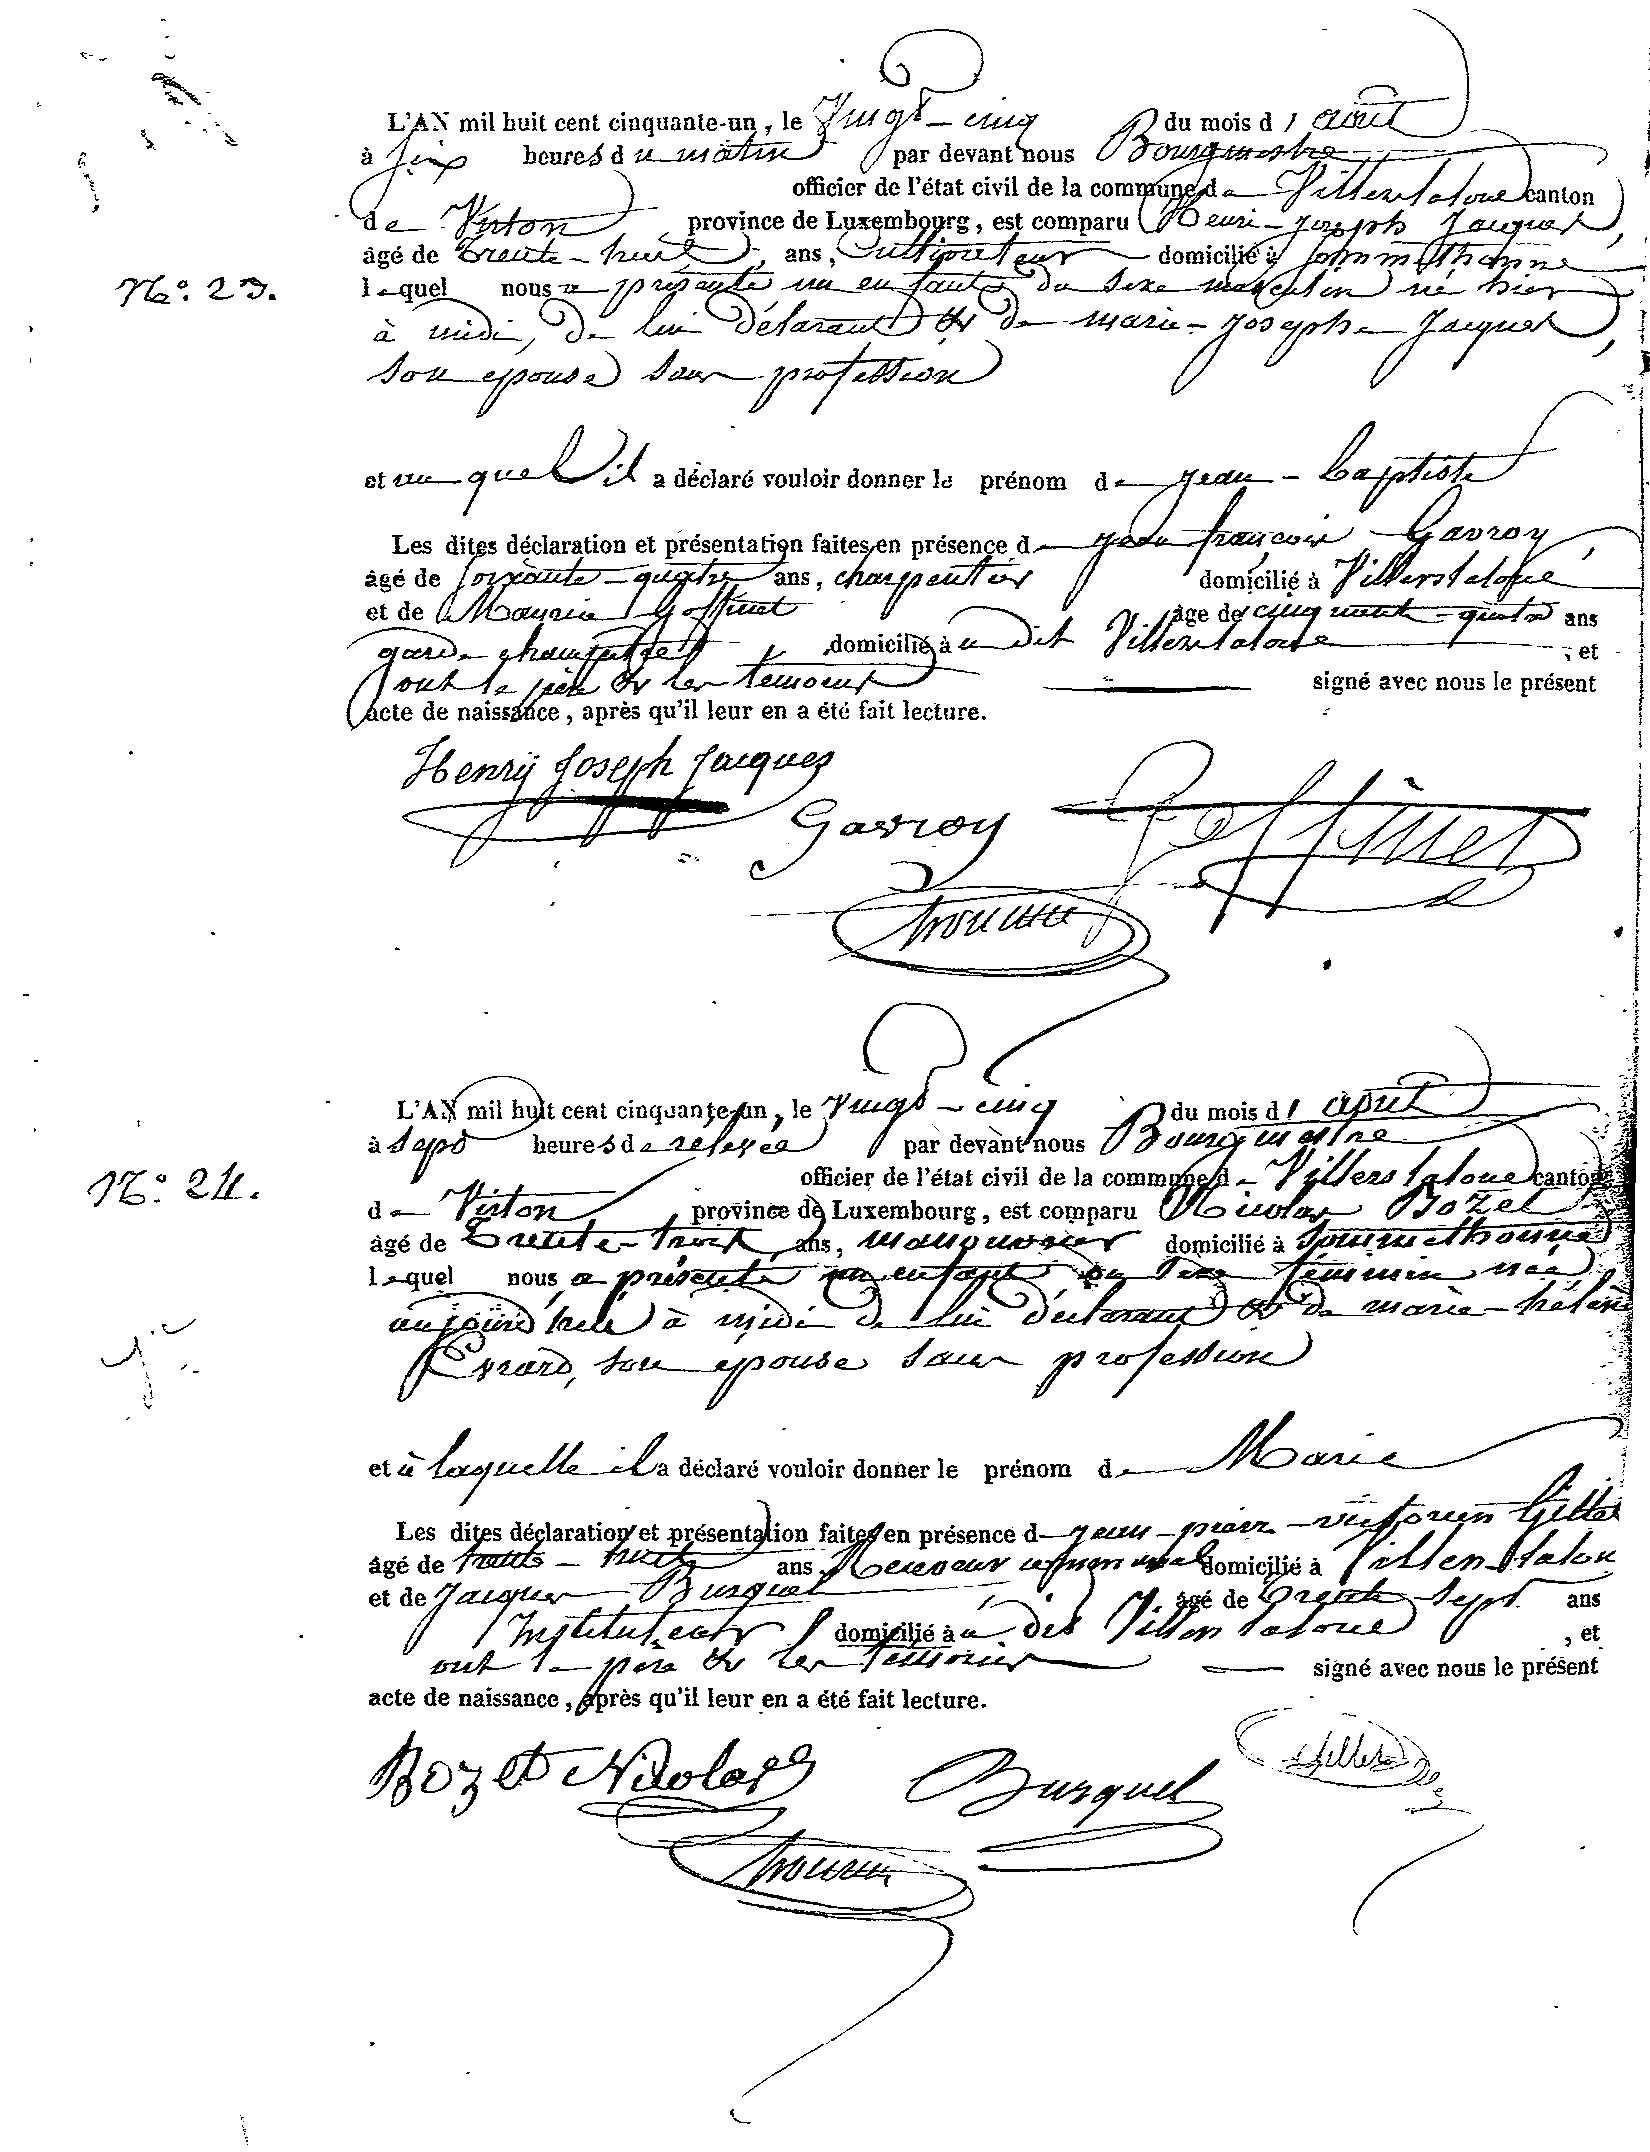 L'AN mil huit cent cinquante-un, le Vingt-cinq du mois d'août
à six heures du matin par devant nous Bourgmestre
officier de l'état civil de la commune de Villerslaloue canton
de Virton province de Luxembourg, est comparu Henri-Joseph Jacques,
âgé de trente-huit ans, Cultivateur domicilié à Sommethonne
N°. 23.
lequel nous a présenté un enfant du sexe masculin né hier
à midi, de lui déclarant & de marie-Josephe Jacques,
son epouse sans profession
et au quel il a déclaré vouloir donner le prénom de jean-baptiste
Les dites déclaration et présentation faites en présence de jean françois Gavroy,
âgé de soixante-quatre ans, charpentier domicilié à Villerslaloue
et de Maurice Goffinet âgé de cinquante-quatre ans
garde champetre domicilié à u dit Villerslaloue, et
ont le père & les temoins signé avec nous le présent
acte de naissance, après qu'il leur en a été fait lecture.
Henry Joseph Jacques
Gavroy Goffinet
L'AN mil huit cent cinquante-un, le Vingt-cinq du mois d'août
à sept heures de relevée par devant nous Bourgmestre
officier de l'état civil de la commune de Villerslaloue canton
N°. 24.
de Virton province de Luxembourg, est comparu Nicolas Bozet
âgé de trente-trois ans, manouvrier domicilié à Sommethonne
lequel nous a présenté un enfant du sexe féminin née
aujourd'hui à midi de lui déclarant & de marie-hélène
Evrard, son epouse sans profession
et à laquelle il a déclaré vouloir donner le prénom de Marie
Les dites déclaration et présentation faites en présence de jean-pierre-victorien Gilles
âgé de trente-huit ans, Receveur communal domicilié à Villerslaloue
et de Jacques Burquel âgé de trente-sept ans
Instituteur domicilié à u dit Villerslaloue, et
ont le père & les temoins signé avec nous le présent
acte de naissance, après qu'il leur en a été fait lecture.
Bozet Nicolas Burquel Gilles